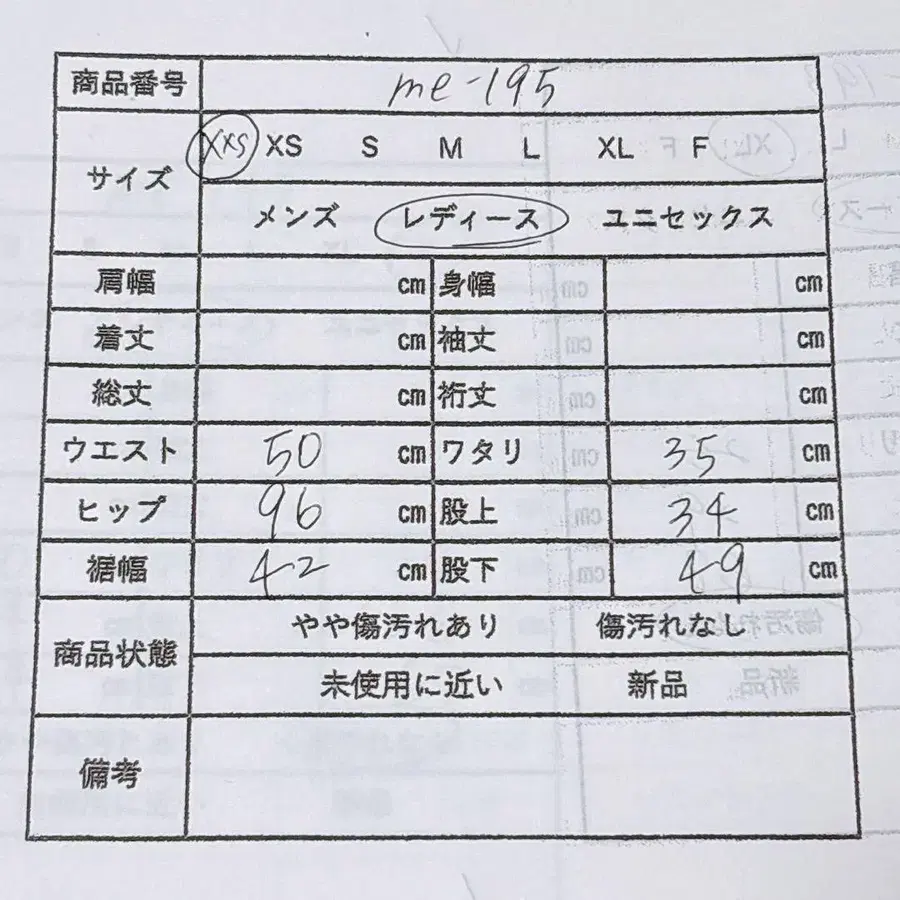 商品番号 me-195
サイズ XXS XS S M L XL F
メンズ レディース ユニセックス
肩幅 cm 身幅 cm
着丈 cm 袖丈 cm
総丈 cm 裄丈 cm
ウエスト 50 cm ワタリ 35 cm
ヒップ 96 cm 股上 34 cm
裾幅 42 cm 股下 49 cm
商品状態 やや傷汚れあり 傷汚れなし
未使用に近い 新品
備考